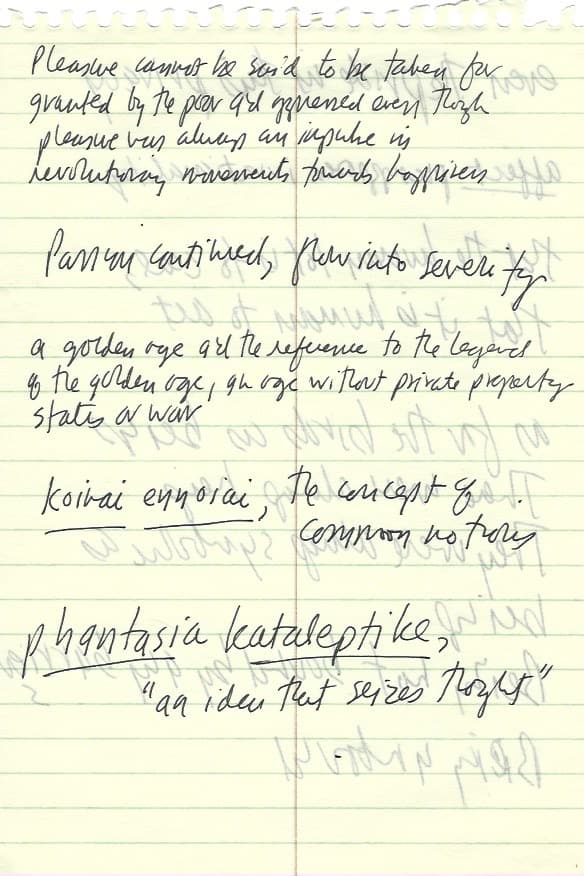 Pleasure cannot be said to be taken for
granted by the poor and oppressed even though
pleasure was always an impulse in
revolutionary movements towards happiness
Passion continued, flow into severity
a golden age and the reference to the legend
of the golden age, an age without private property
states or war
koinai ennoiai, the concept of
common notions
phantasia kataleptike,
"an idea that seizes thought"